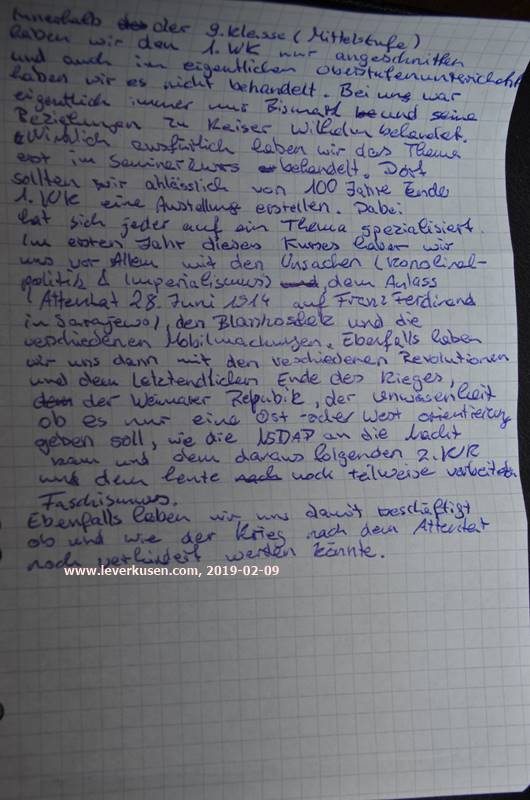 Innerhalb der 9. Klasse (Mittelstufe)
haben wir den 1. WK nur angeschnitten
und auch im eigentlichen Oberstufenunterricht
haben wir es nicht behandelt. Bei uns war
eigentlich immer nur Bismark und seine
Beziehungen zu Kaiser Wilhelm behandet.
Wirklich ausfürlich haben wir das Thema
erst im Seminarkurs behandelt. Dort
sollten wir anlässlich von 100 Jahre Ende
1. WK eine Austellung erstellen. Dabei
hat sich jeder auf ein Thema spezialisiert.
Im ersten Jahr dieses Kurses haben wir
uns vor Allem mit den Ursachen (Kolonial-
politik & Imperialismus) dem Anlass
(Attentat 28. Juni 1914 auf Franz Ferdinand
in Sarajewo), den Blankoscheck und die
verschiedenen Mobilmachungen. Ebenfalls haben
wir uns dann mit den veschiedenen Revolutionen
und dem Letztendlichen Ende des Krieges,
der Weimarer Republik, der Unwissenheit
ob es nur eine Ost- oder West orientierung
geben soll, wie die NSDAP an die Macht
kam und dem daraus folgenden 2. WK
und dem heute noch teilweise verbreiteten
Faschismus.
Ebenfalls haben wir uns damit beschäftigt
ob und wie der Krieg nach dem Attentat
noch verhindert werden könnte.
www.leverkusen.com, 2019-02-09